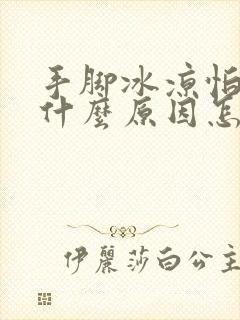 手脚冰涼怕
什麼原因怎
伊麗莎白公主